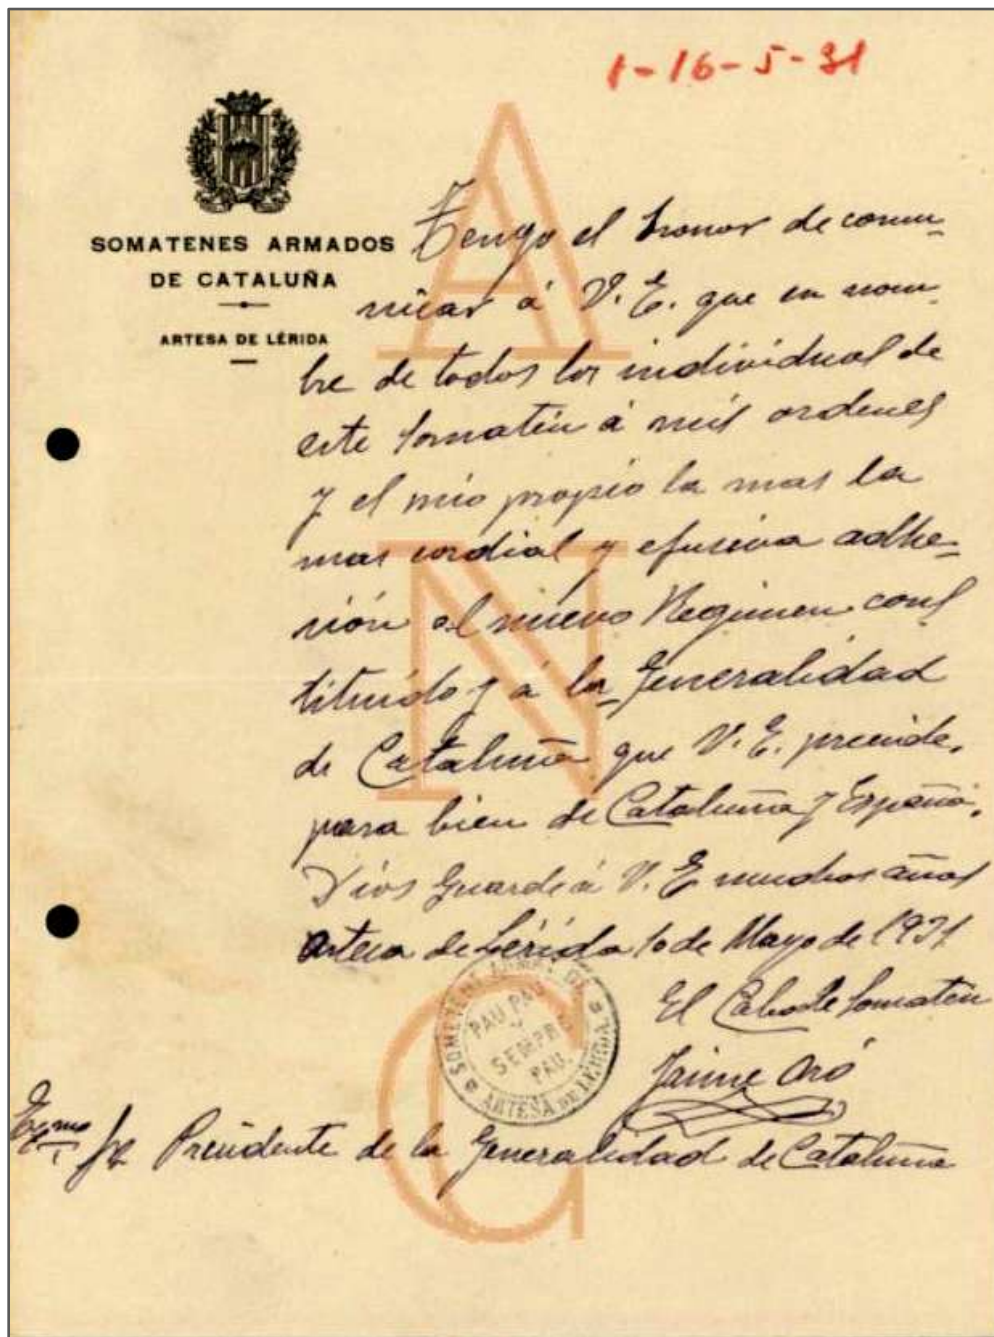 1-16-5-31
SOMATENES ARMADOS
DE CATALUÑA
ARTESA DE LÉRIDA
Tengo el honor de comu-
nicar á V. E. que en nom-
bre de todos los individuos de
este Somatén á mis ordenes
y el mio propio la mas la
mas cordial y efusiva adhe-
sión al nuevo Regimen cons
tituído y á la Generalidad
de Cataluña que V. E. preside,
para bien de Cataluña y España.
Dios Guarde á V. E muchos años
Artesa de Lérida 10 de Mayo de 1931
El Cabo de Somatén
Jaime Oró
SOMETENT ARMAT DE
PAU PAU
SEMPRE
PAU.
ARTESA DE LÉRIDA
Exmo Sr Presidente de la Generalidad de Cataluña
A
N
C